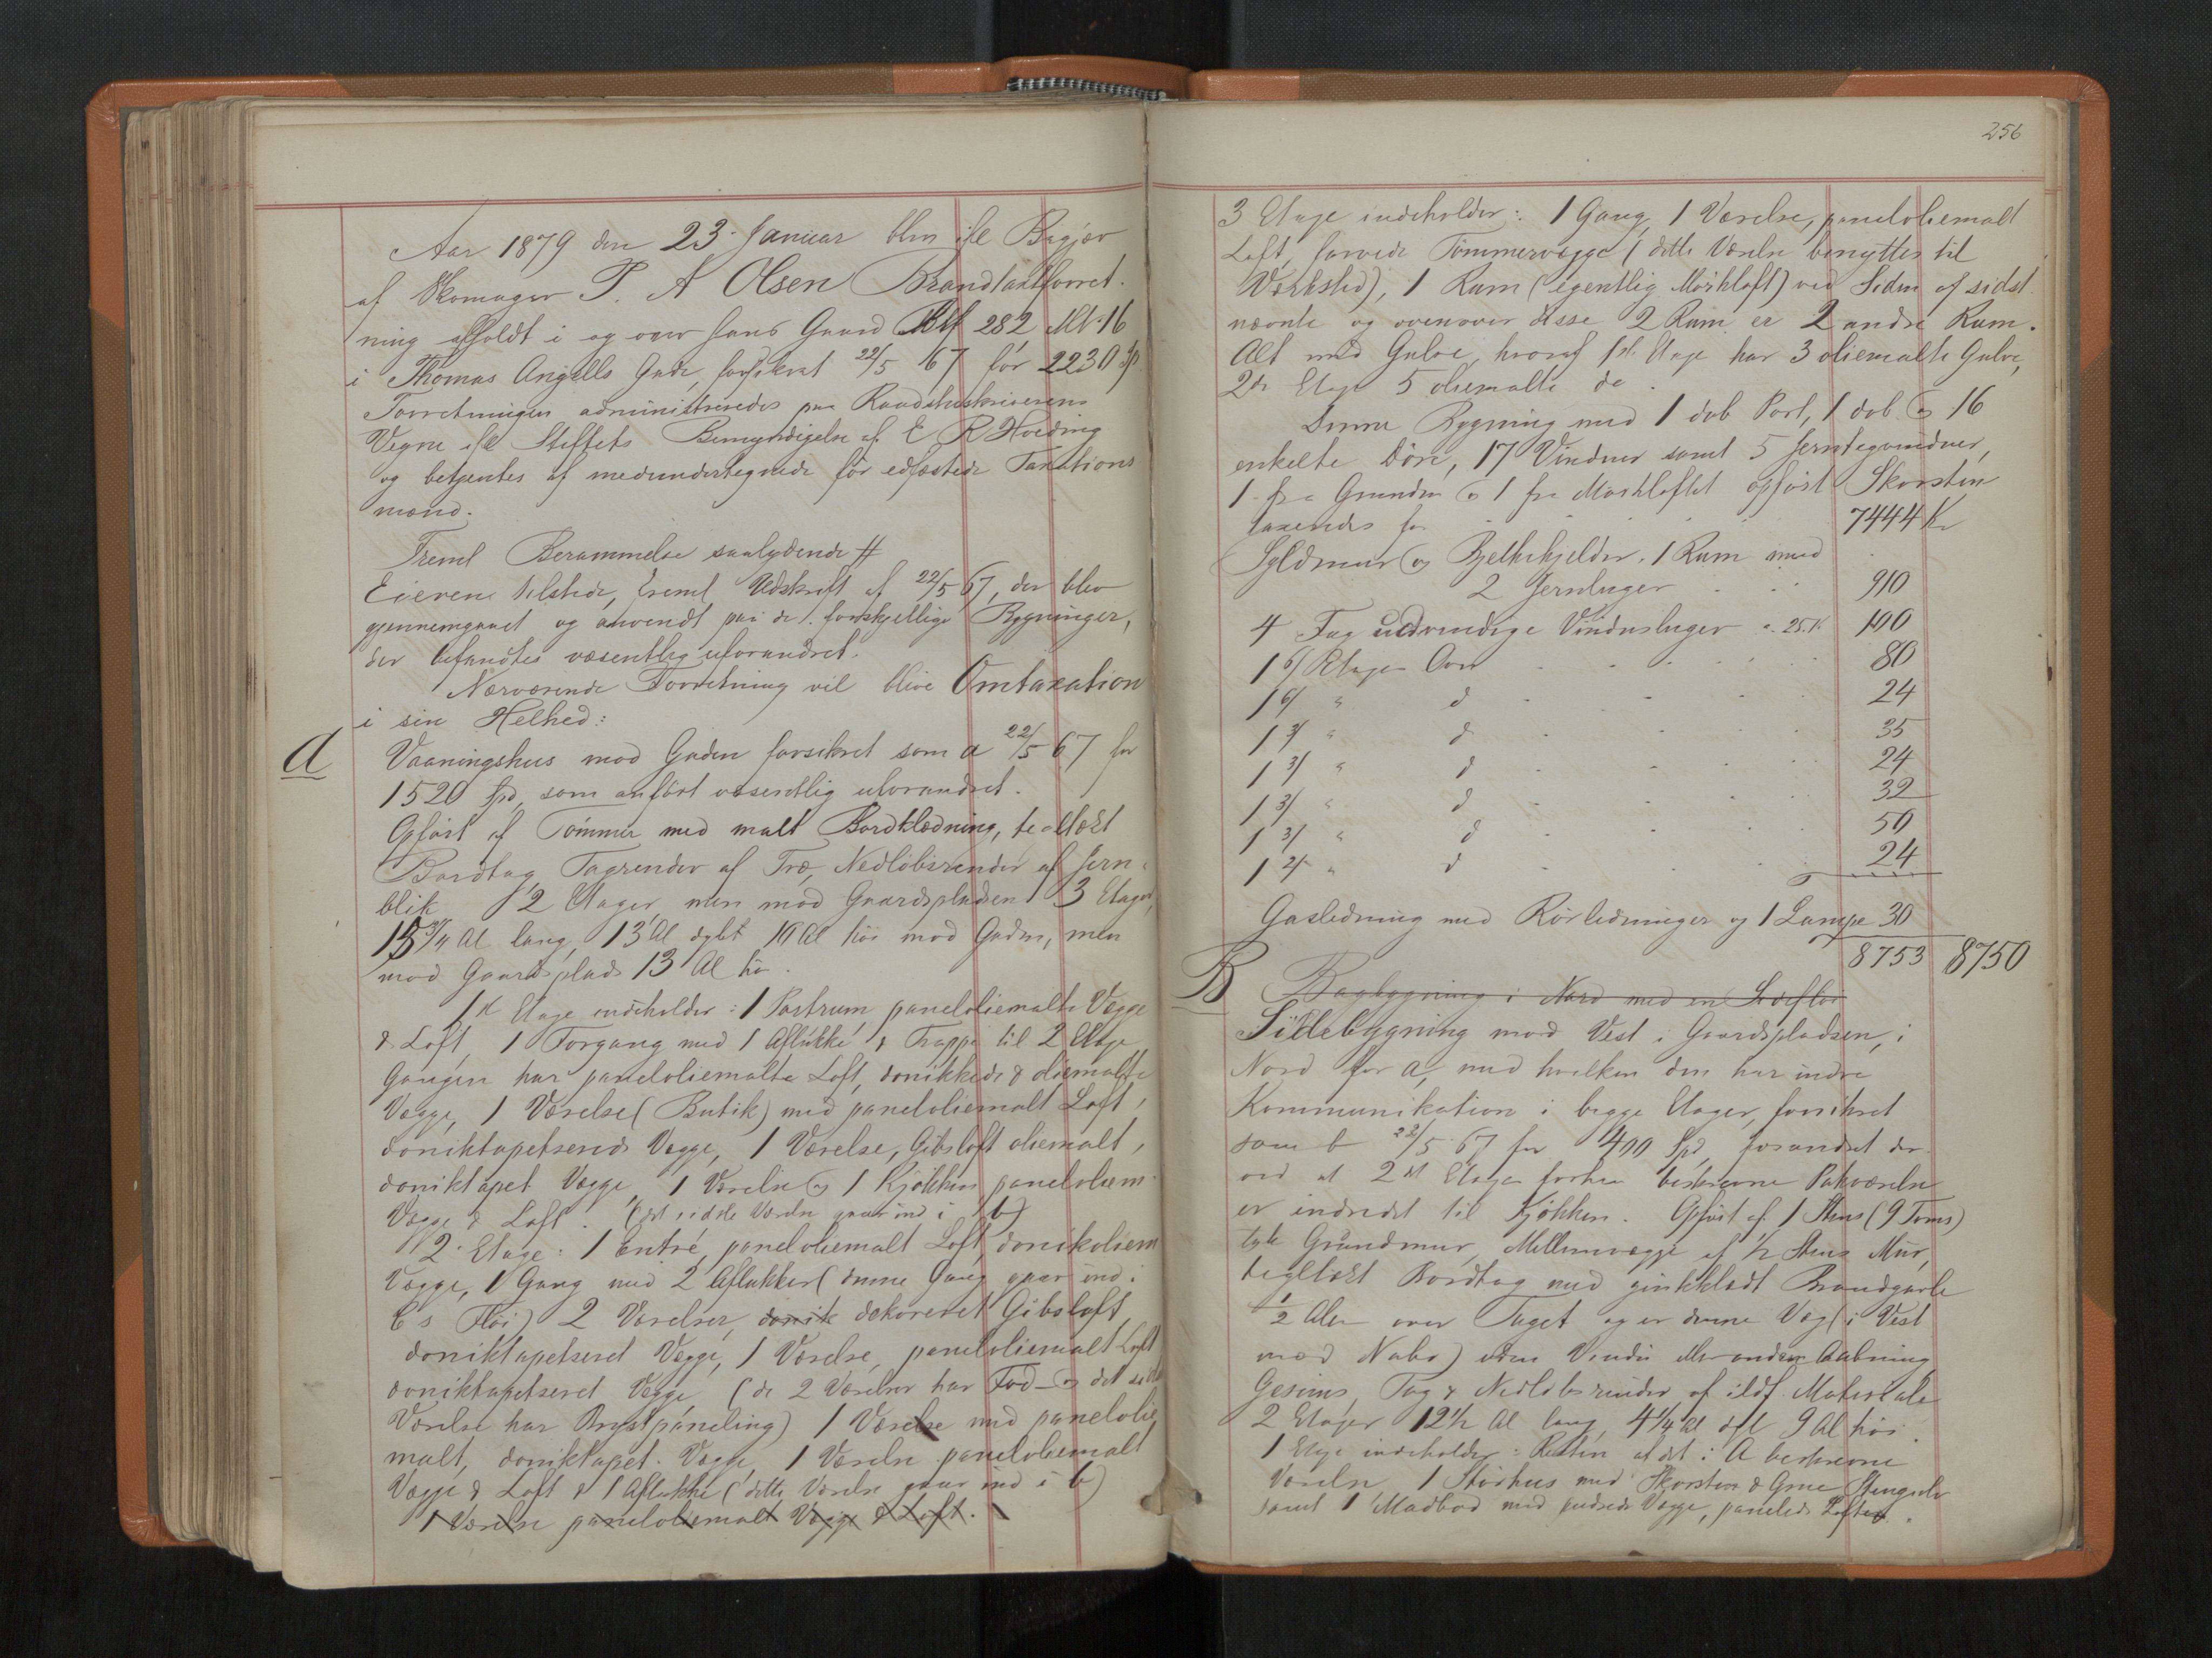 Aar 1879 den 23 Januar blev ifl Begjær
af Skomager P. A Olsen Brandtaxtforret-
ning afholdt i og over hans Gaard 282 Mt. 16
i Thomas Angells Gade, forsikret 22/5 67 for 2230 Sp
Forretningen administreredes paa Raadstueskriverens
Vegne ifl Stiftets Bemyndigelse af E R Hveding
og betjentes af medundertegnede før edfæstede Taxations
mænd.
Freml Berammelse saalydende #
Eieren tilstede, freml Udskrift af 22/5 67, der blev
gjennemgaaet og anvendt paa de forskjellige Bygninger,
der befandtes væsentlig uforandret.
Nærværende Forretning vil blive Omtaxation
i sin Helhed:
a Vaaningshus mod Gaden forsikret som a 22/5 67 for
1520 Spd, som anført væsentlig uforandret.
Opført af Tømmer med malt Bordklædning, teglækt
Bordtag, Tagrender af Træ, Nedløbsrender af Jern-
blik 2 Etager men mod Gaardspladsen 3 Etager,
15 3/4 Al lang, 13 Al dybt 10 Al høi mod Gaden, men
mod Gaardsplads 13 Al hø.
1st Etage indeholder: 1 Portrum paneloliemalte Vægge
& Loft, 1 Forgang med 1 Aflukke & Trappe til 2 Etage
Gangen har paneloliemalte Loft, donikkede & oliemalte
Vægge, 1 Værelse (Butik) med paneloliemalt Loft,
doniktapetserede Vægge, 1 Værelse, Gibsloft oliemalt,
doniktapet Vægge, 1 Værelse og 1 Kjøkken paneloliem-
Vægge & Loft. (det sidste Værelse gaar ind i b)
2 Etage: 1 Entré, paneloliemalt Loft donikoliem
Vægge, 1 Gang med 2 Aflukker (denne Gang gaar ind i
C s Fløi) 2 Værelser, donik dekoreret Gibsloft,
doniktapetseret Vægge, 1 Værelse, paneloliemalt Loft
doniktapetseret Vægge (de 2 Værelser har Fod- og det sidste
Værelse har Brystpaneling) 1 Værelse med panelolie
malt, doniktapet. Vægge, 1 Værelse paneloliemalt
Vægge & Loft & 1 Aflukke (dette Værelse gaar ind i b)
1 Værelse paneloliemalt Vægge & Loft.
256
3 Etage indeholder: 1 Gang, 1 Værelse, paneloliemalt
Loft, farvede Tømmervægge (dette Værelse benyttes til
Værksted), 1 Rum (egentlig Mørkloft) ved Siden af sidst
nævnte og ovenover disse 2 Rum er 2 andre Rum.
Alt med Gulve, hvoraf 1st Etage har 3 oliemalte Gulve,
2de Etage 5 oliemalte do.
Denne Bygning med 1 dob Port, 1 dob og 16
enkelte Døre, 17 Vinduer samt 5 Jerntagvinduer,
1 fra Grunden og 1 fra Mørkloftet opført Skorsten
taxeredes for 7444 Kr
Syldmur og Bjelkekjelder. 1 Rum med
2 Jernluger 910
4 Fag udvendige Vinduesluger a 25 K 100
1 6/ Etages Ovn 80
1 6/ " d 24
1 3/ " d 35
1 3/ " d 24
1 3/ " d 32
1 3/ " d 50
1 2/ " d 24
Gasledning med Rørledninger og 1 Lampe 30
8753 8750
B Bagbygning i Nord med en
Sidebygning mod Vest i Gaardspladsen, i
Nord for a, med hvilken den har indre
Kommunikation i begge Etager, forsikret
som b 22/5 67 for 400 Spd, forandret der-
ved at 2det Etages forhen beskrevne Pakværelse
er indredet til Kjøkken. Opført af 1 Stens (9 Toms)
tyk Grundmur, Mellemvægge af 1/2 Stens Mur,
teglækt Bordtag med zinkklædt Brandgavle
1/2 Alen over Taget og er denne Væg (i Vest
mod Nabo) uden Vindu eller anden Aabning
Gesims, Tag & Nedløbsrender af ildf. Materiale
2 Etager 12 1/2 Al lang, 4 1/4 Al dyb 9 Al høi.
1 Etage indeholder: Resten af det i A beskrevne
Værelse, 1 Størhus med Skorsten & Grue Stengulv
samt 1 Madbod med pudsede Vægge, panelede Lofter.